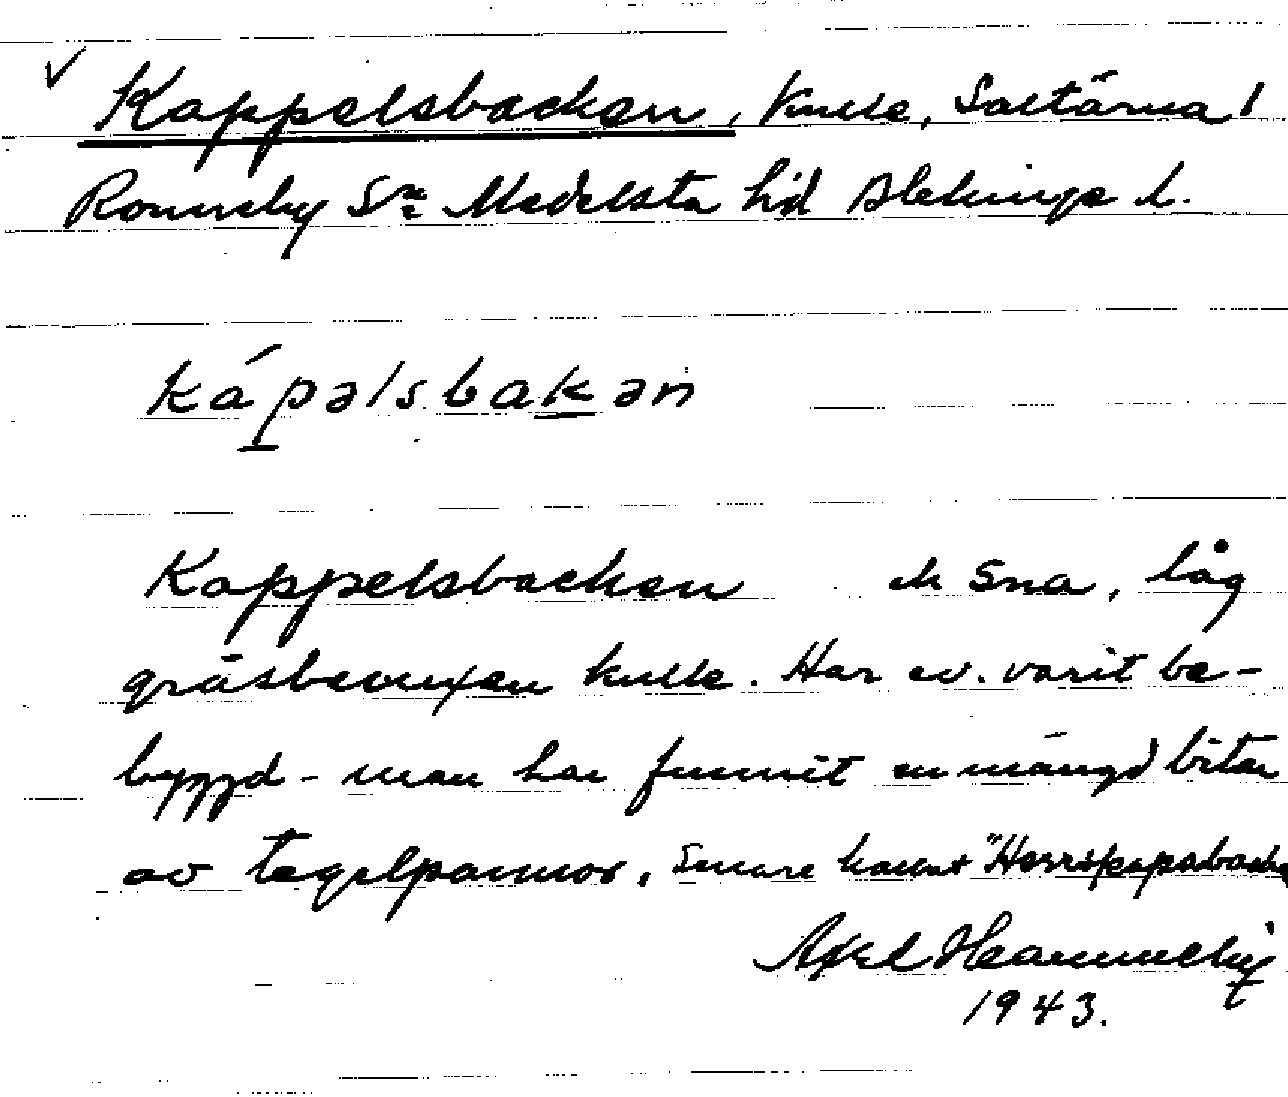 Kappelsbacken, Kulle, Saltärna 1
Ronneby Sn Medelsta hd Blekinge l.
kápəlsbakən
Kappelsbacken sna, låg
gräsbevuxen kulle. Har ev. varit be-
byggd - man har funnit en mängd bitar
av tegelpannor. Senare kallat "Herrskapsbacken
Axel
1943.